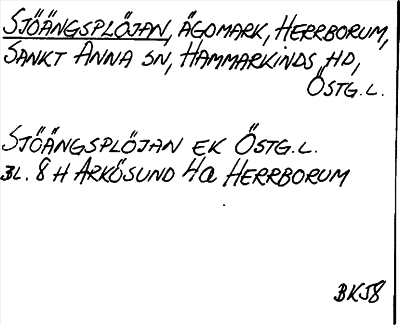 SJÖÄNGSPLÖJAN, ÄGOMARK, HERRBORUM,
SANKT ANNA SN, HAMMARKINDS HD,
ÖSTG. L.
SJÖÄNGSPLÖJAN EK ÖSTG. L.
BL. 8 H ARKÖSUND 4a HERRBORUM
BKJ8